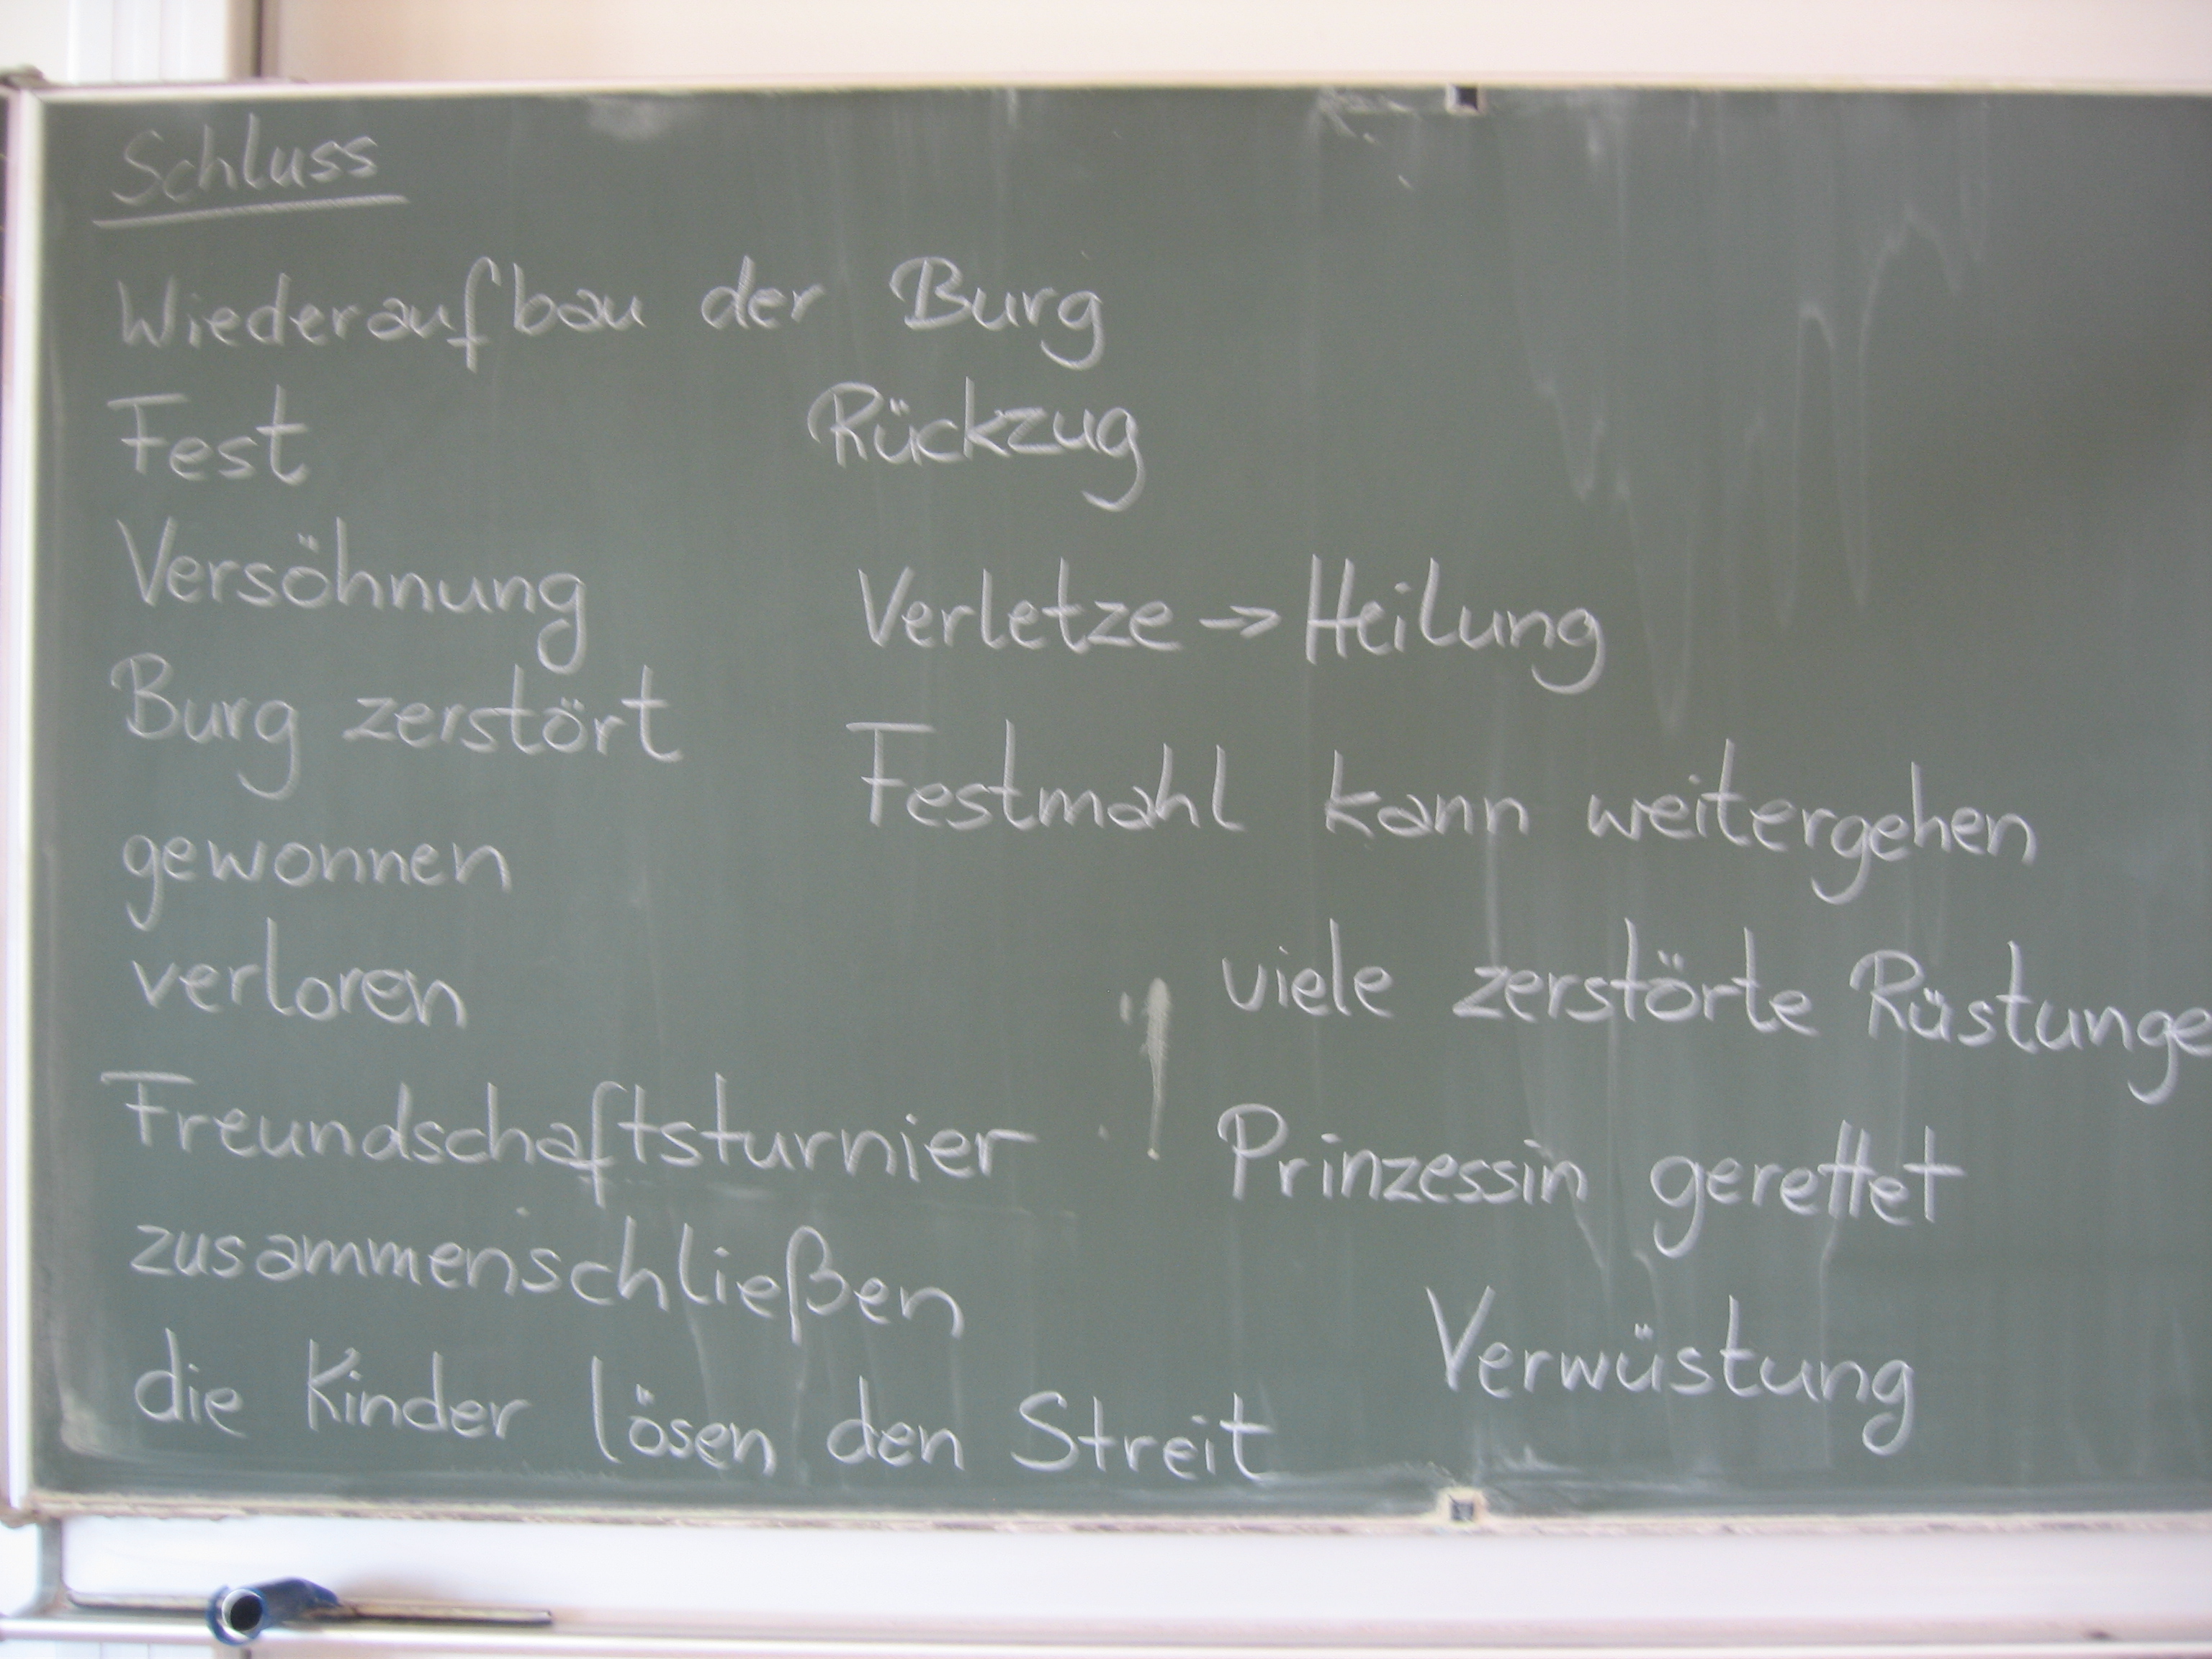 Schluss
Wiederaufbau der Burg
Fest
Rückzug
Versöhnung
Verletze -> Heilung
Burg zerstört
Festmahl kann weitergehen
gewonnen
verloren
viele zerstörte Rüstunge
Freundschaftsturnier
Prinzessin gerettet
zusammenschließen
Verwüstung
die Kinder lösen den Streit